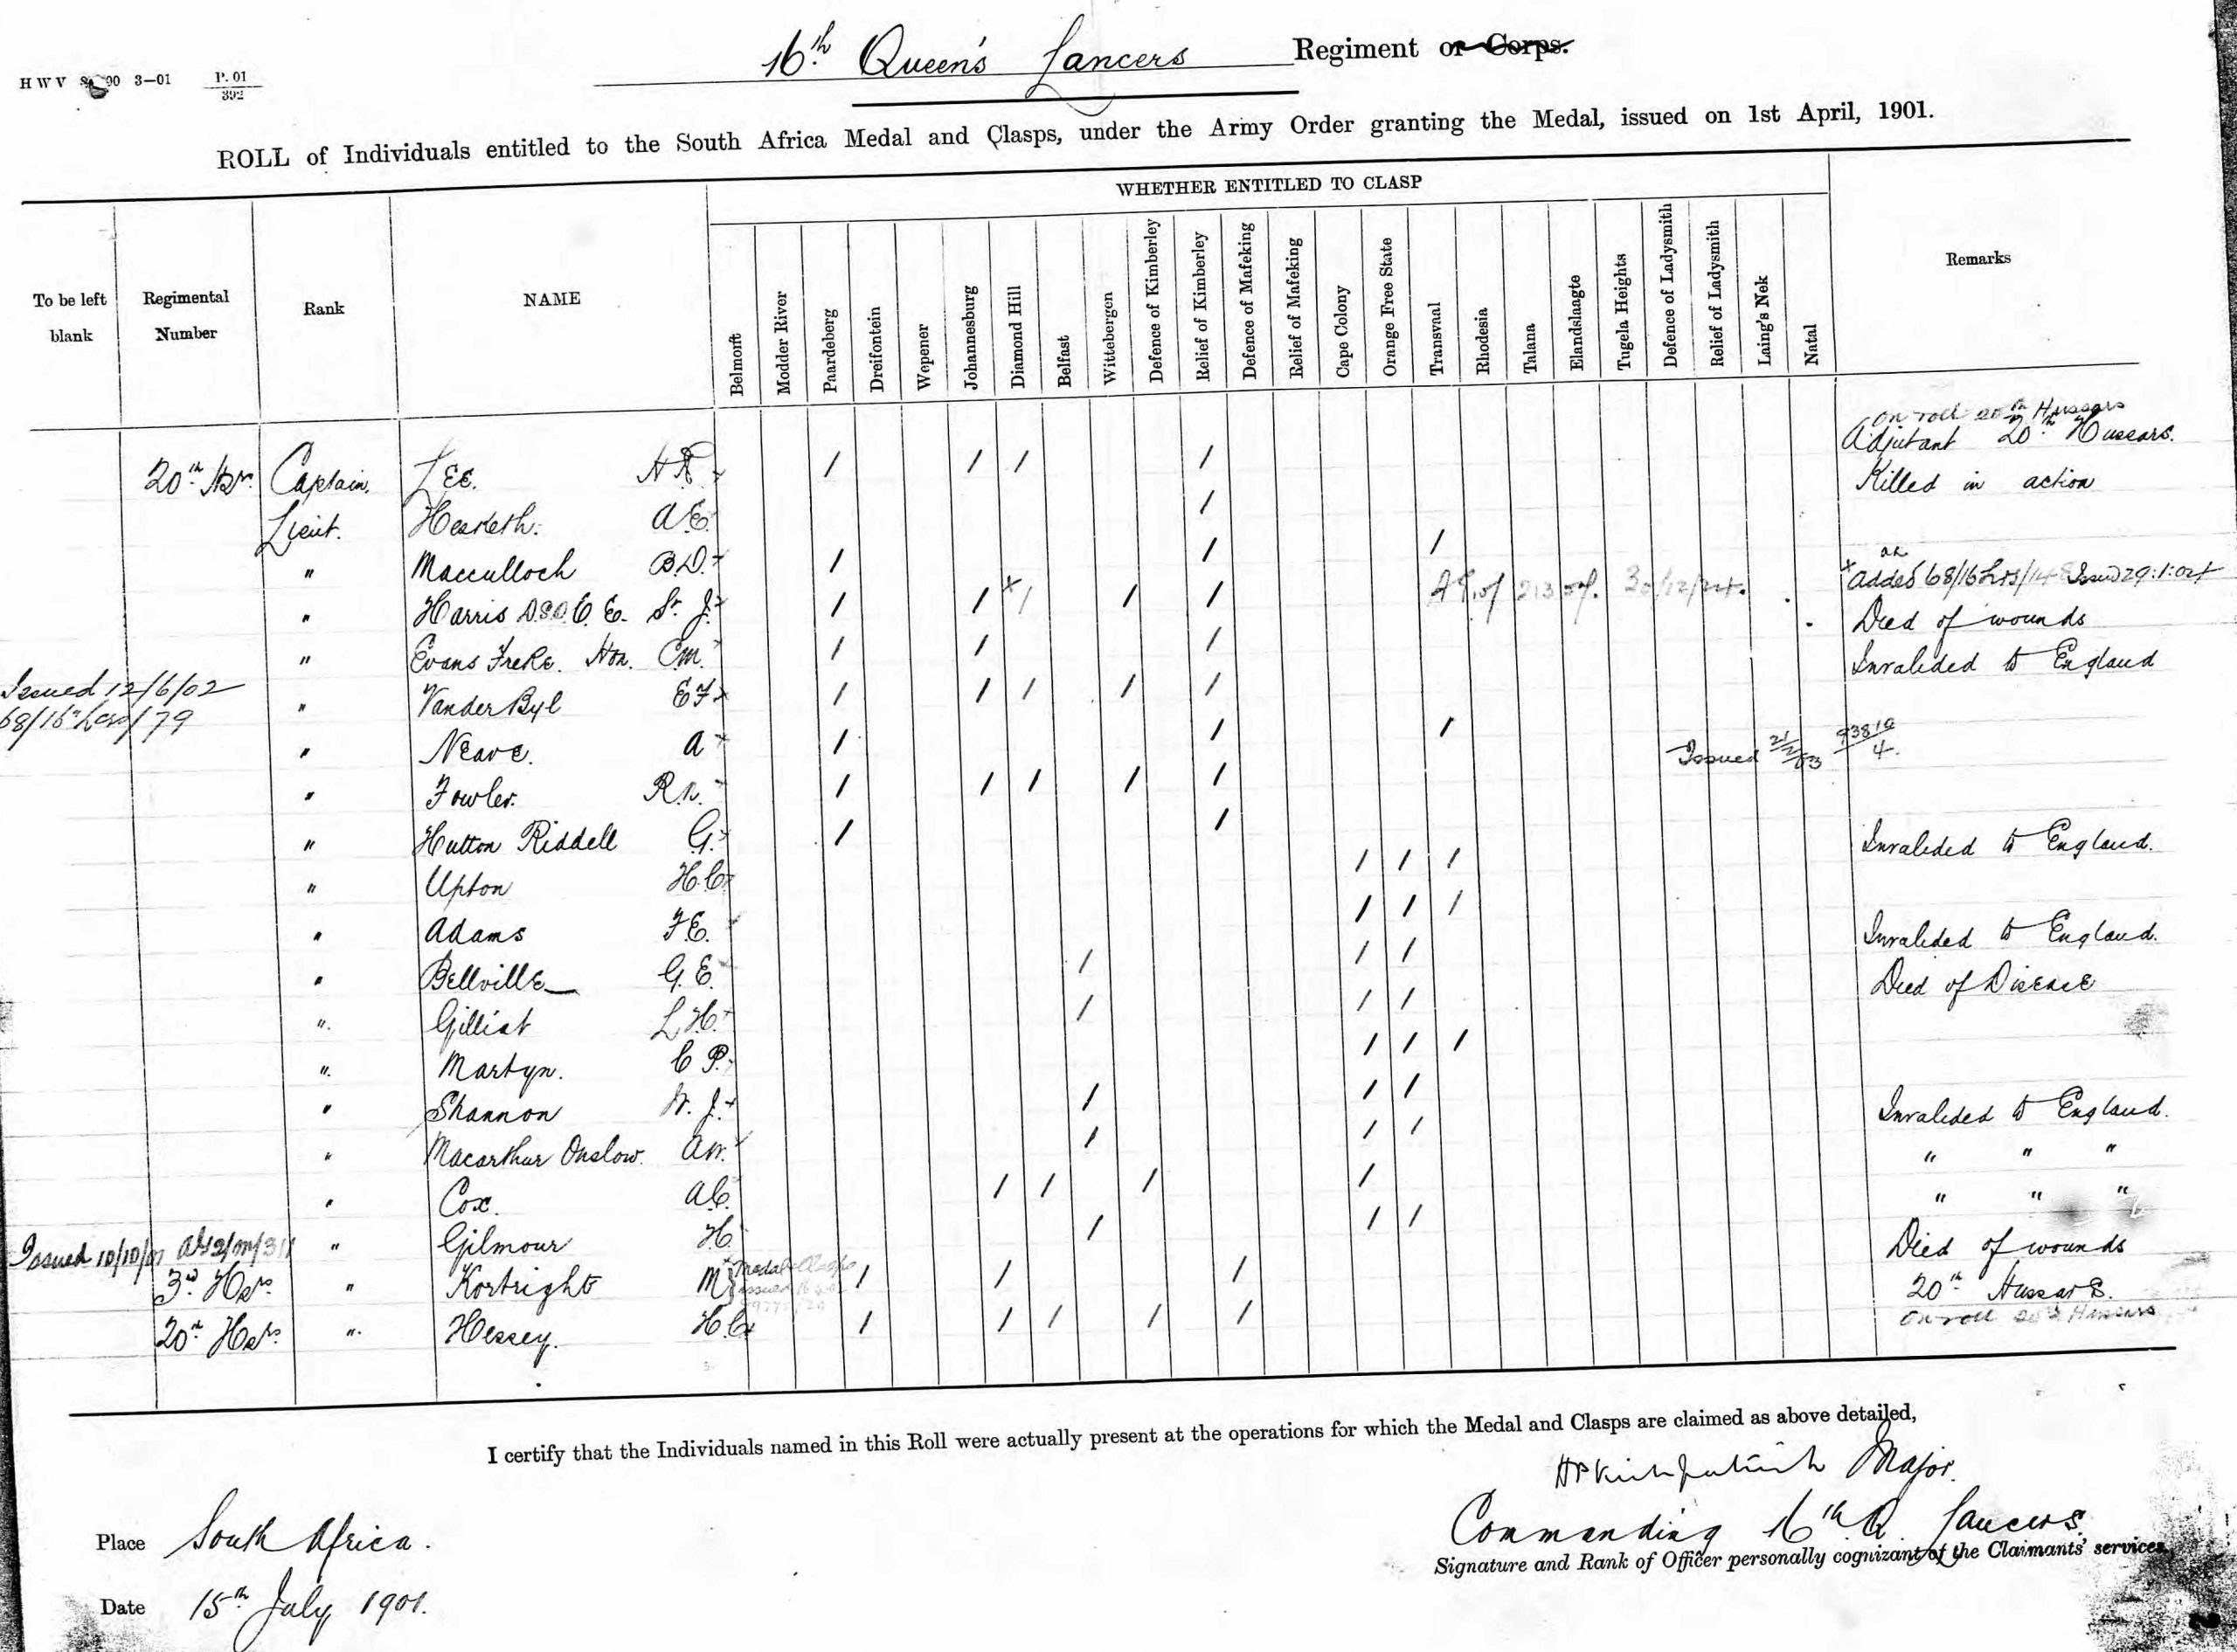 16th Queen's Lancers Regiment or Corps.
H W V 3—01 P. 01
392
ROLL of Individuals entitled to the South Africa Medal and Clasps, under the Army Order granting the Medal, issued on 1st April, 1901.
WHETHER ENTITLED TO CLASP
To be left blank
Regimental Number
Rank
NAME
Belmont
Modder River
Paardeberg
Dreifontein
Wepener
Johannesburg
Diamond Hill
Belfast
Wittebergen
Defence of Kimberley
Relief of Kimberley
Defence of Mafeking
Relief of Mafeking
Cape Colony
Orange Free State
Transvaal
Rhodesia
Talana
Elandslaagte
Tugela Heights
Defence of Ladysmith
Relief of Ladysmith
Laing's Nek
Natal
Remarks
On roll 20th Hussars
20th Hrs. Captain. Lee. / / / / Adjutant 20th Hussars.
Lieut. Hesketh. A.E. / Killed in action
" Macculloch B.D. / / /
" Harris D.S.O. C. E. St. J. / / x / / / added 68/16 Lrs/ Issd 29:1:04
" Evans Freke. Hon. C.M. / / / Died of wounds
" Vander Byl E F / / / / / Invalided to England
Issued 12/6/02
68/16 Lcrs/79
" Neave. A / / /
Issued 21/2/03 4.
" Fowler. R.N. / / / / /
" Hutton Riddell G. / /
" Upton H.C. / / / Invalided to England.
" Adams F.E. / / /
" Bellville G.E. / / / Invalided to England.
" Gilliat L.H. / / / Died of Disease
" Martyn. C P. / / /
" Shannon W. J. / / /
" Macarthur Onslow. A.W. / / / Invalided to England.
" Cox. A.C. / / / / " " "
" Gilmour H. / / / " " "
Issued 10/10/01
3rd Hrs. " Kortright M / / / Died of wounds
Medal Clasps
issued
20th Hrs. " Hessey. H.C. / / / / / 20th Hussars.
On roll 20th Hussars
I certify that the Individuals named in this Roll were actually present at the operations for which the Medal and Clasps are claimed as above detailed,
HP Kirkpatrick Major.
Commanding 16th Q. Lancers.
Signature and Rank of Officer personally cognizant of the Claimants' services.
Place South Africa.
Date 15th July 1901.